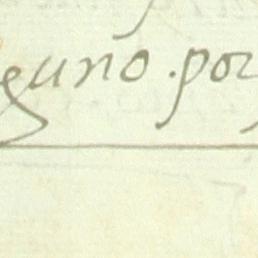 guno . por